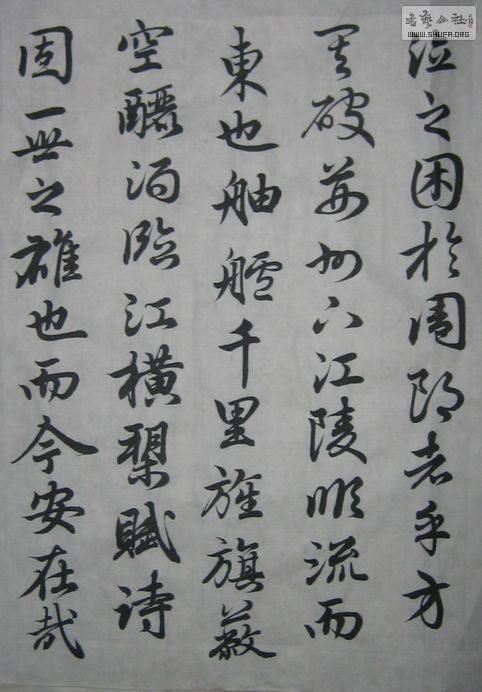 書藝公社
WWW.SHUFA.ORG
之困於周郎者乎方
其破荊州下江陵順流而
東也舳艫千里旌旗蔽
空釃酒臨江橫槊賦詩
固一世之雄也而今安在哉